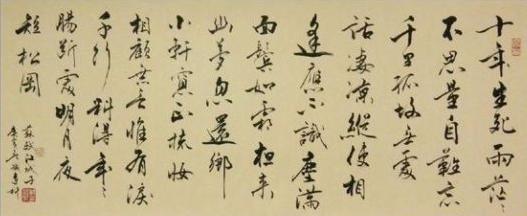 十年生死兩茫〻
不思量自難忘
千里孤墳無處
話淒涼縱使相
逢應不識塵滿
面鬢如霜夜來
幽夢忽還鄉
小軒窗正梳妝
相顧無言惟有淚
千行料得年〻
腸斷處明月夜
短松岡
蘇軾江城子